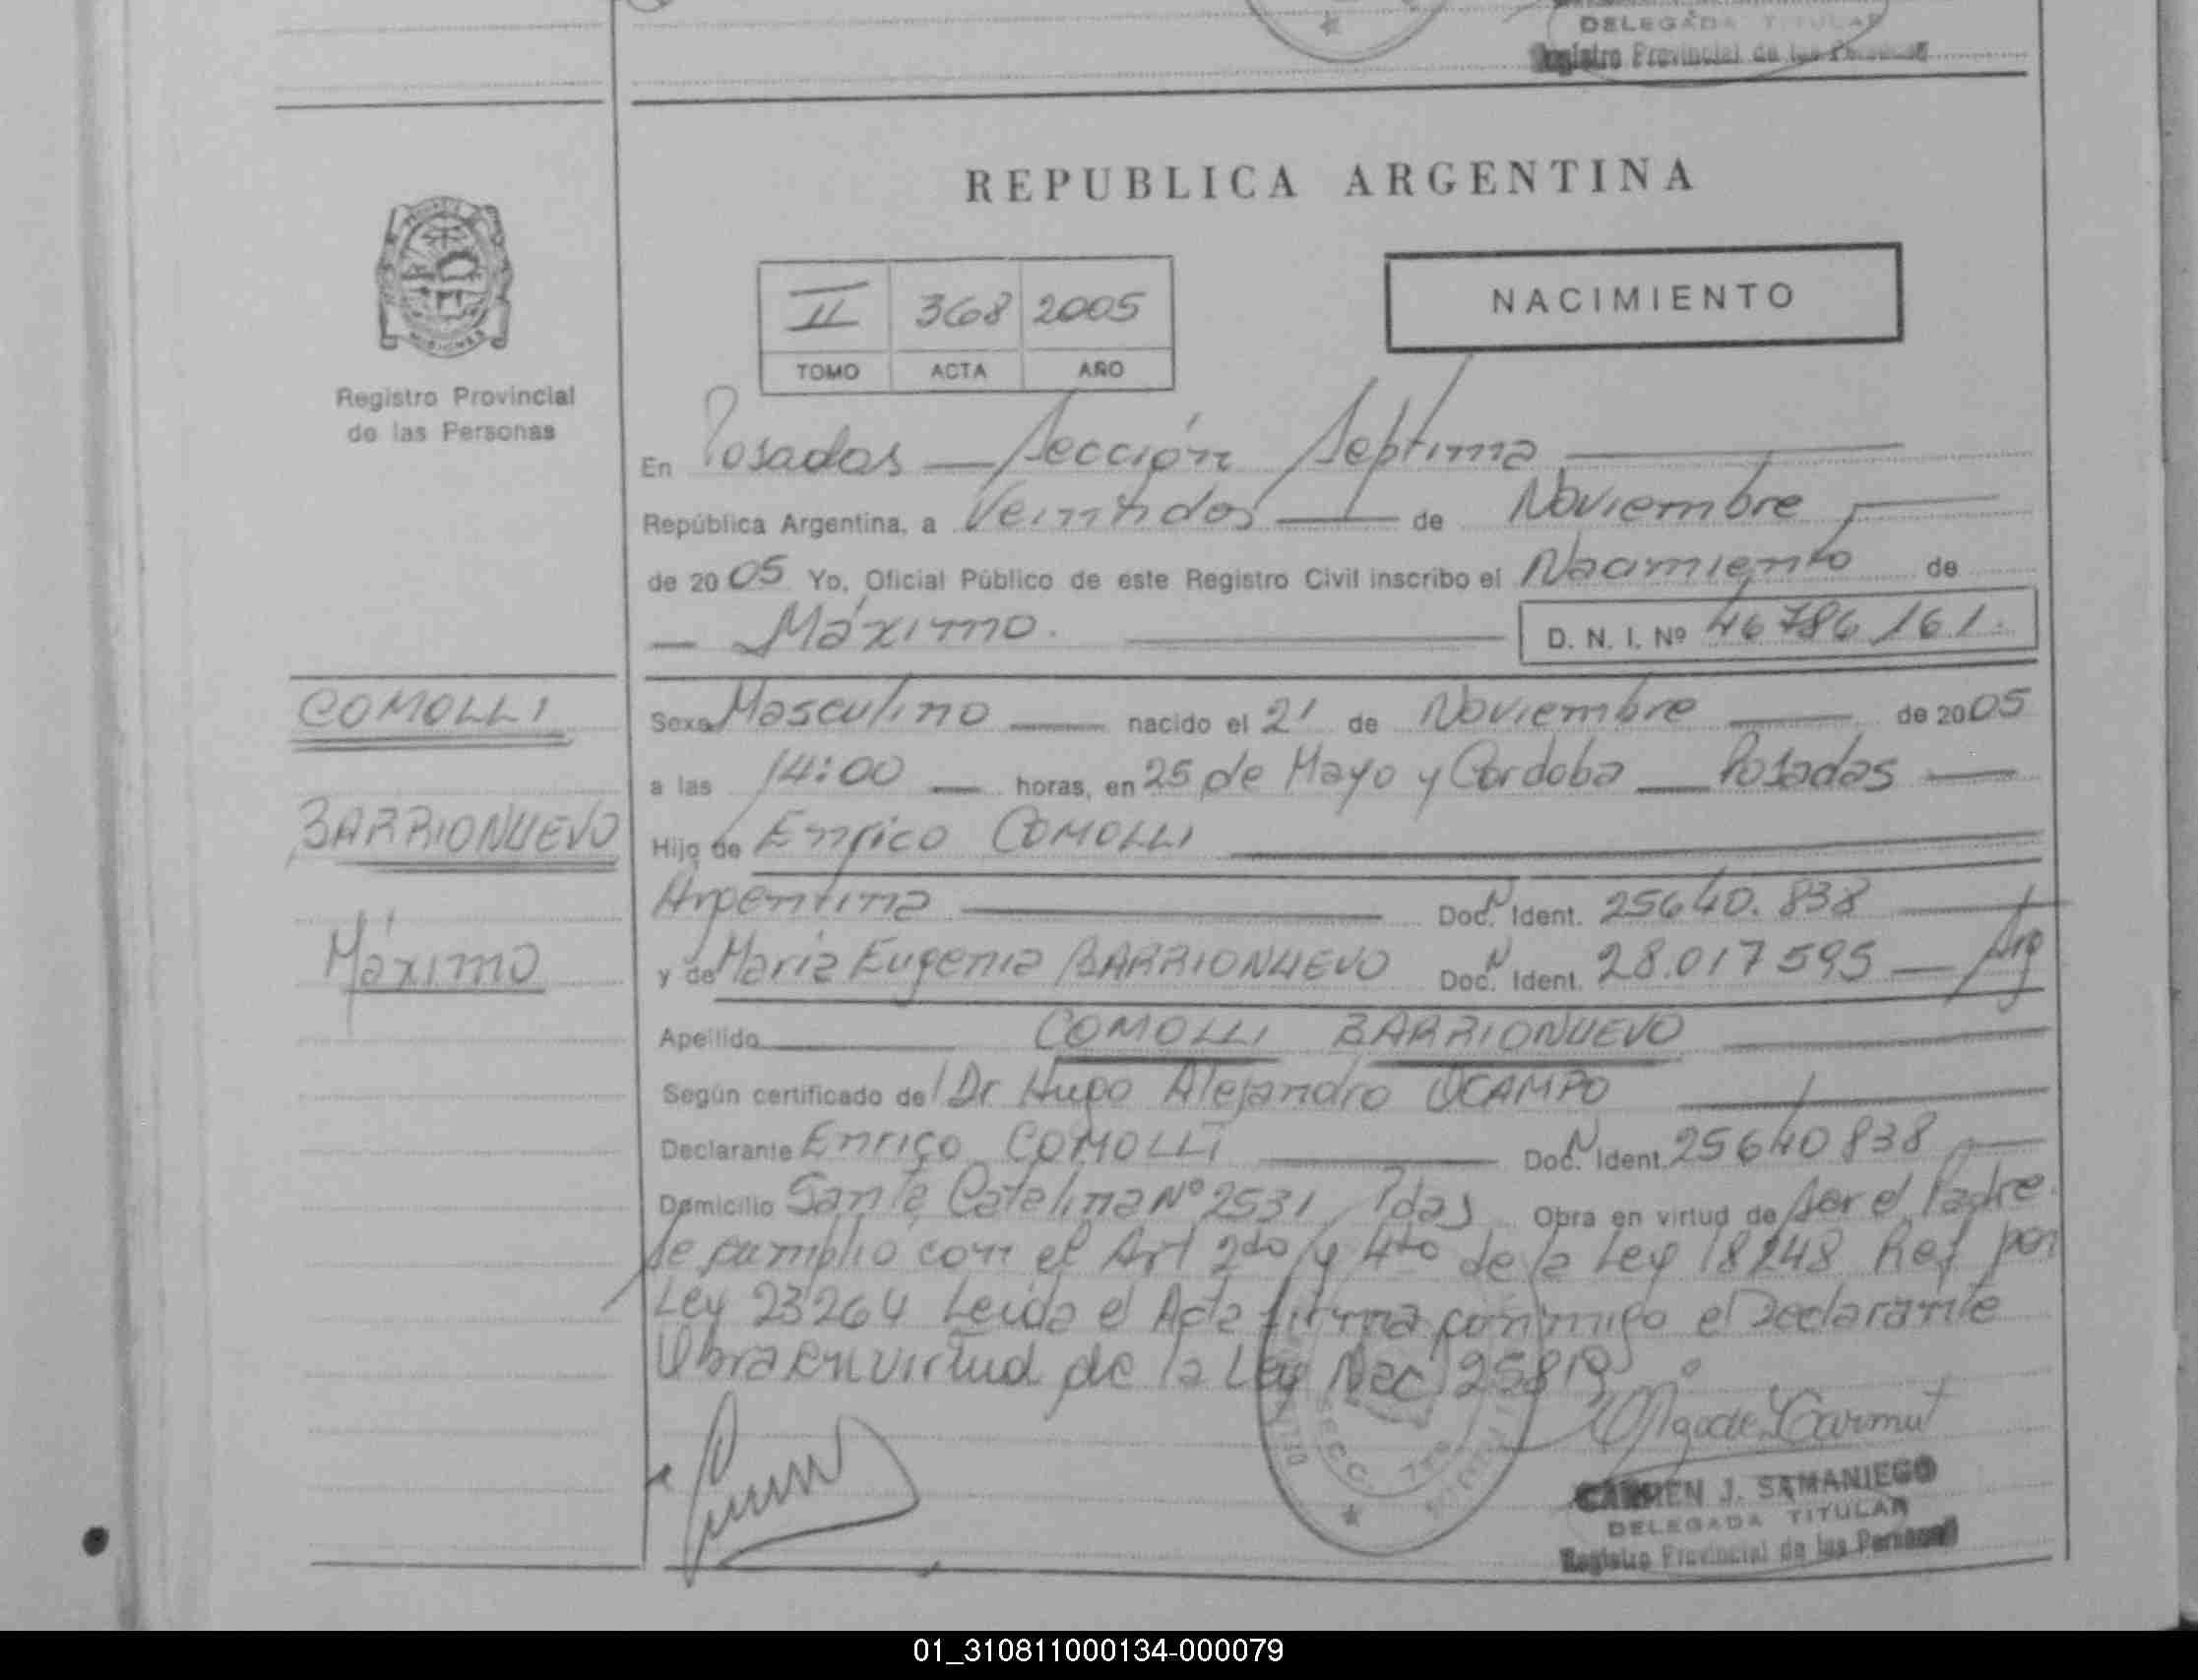 DELEGADA TITULAR
Registro Provincial de las Personas
REPUBLICA ARGENTINA
II 368 2005
TOMO ACTA AÑO
NACIMIENTO
MISIONES
Registro Provincial
de las Personas
En Posadas — Sección Septima
República Argentina, a Veintidos de Noviembre
de 2005 Yo, Oficial Público de este Registro Civil inscribo el Nacimiento de
Máximo. D. N. I. Nº 46786161.
COMOLLI
BARRIONUEVO
Máximo
Sexo Masculino nacido el 21 de Noviembre de 2005
a las 14:00 horas, en 25 de Mayo y Cordoba Posadas
Hijo de Enrico COMOLLI
Argentina Doc. N Ident. 25640.838
y de María Eugenia BARRIONUEVO Doc. N Ident. 28.017595 — Arg
Apellido COMOLLI BARRIONUEVO
Según certificado del Dr Hugo Alejandro OCAMPO
Declarante Enrico COMOLLI Doc. N Ident. 25640838
Domicilio Santa Catalina Nº 2531 Pdas Obra en virtud de ser el Padre.
Se cumplio con el Art 2do y 4to de la Ley 18248 Ref por
Ley 23264 Leida el Acta firma conmigo el Declarante
Obra en virtud de la Ley Nac 25819
SECC. 7ma
CARMEN J. SAMANIEGO
DELEGADA TITULAR
Registro Provincial de las Personas
01_310811000134-000079